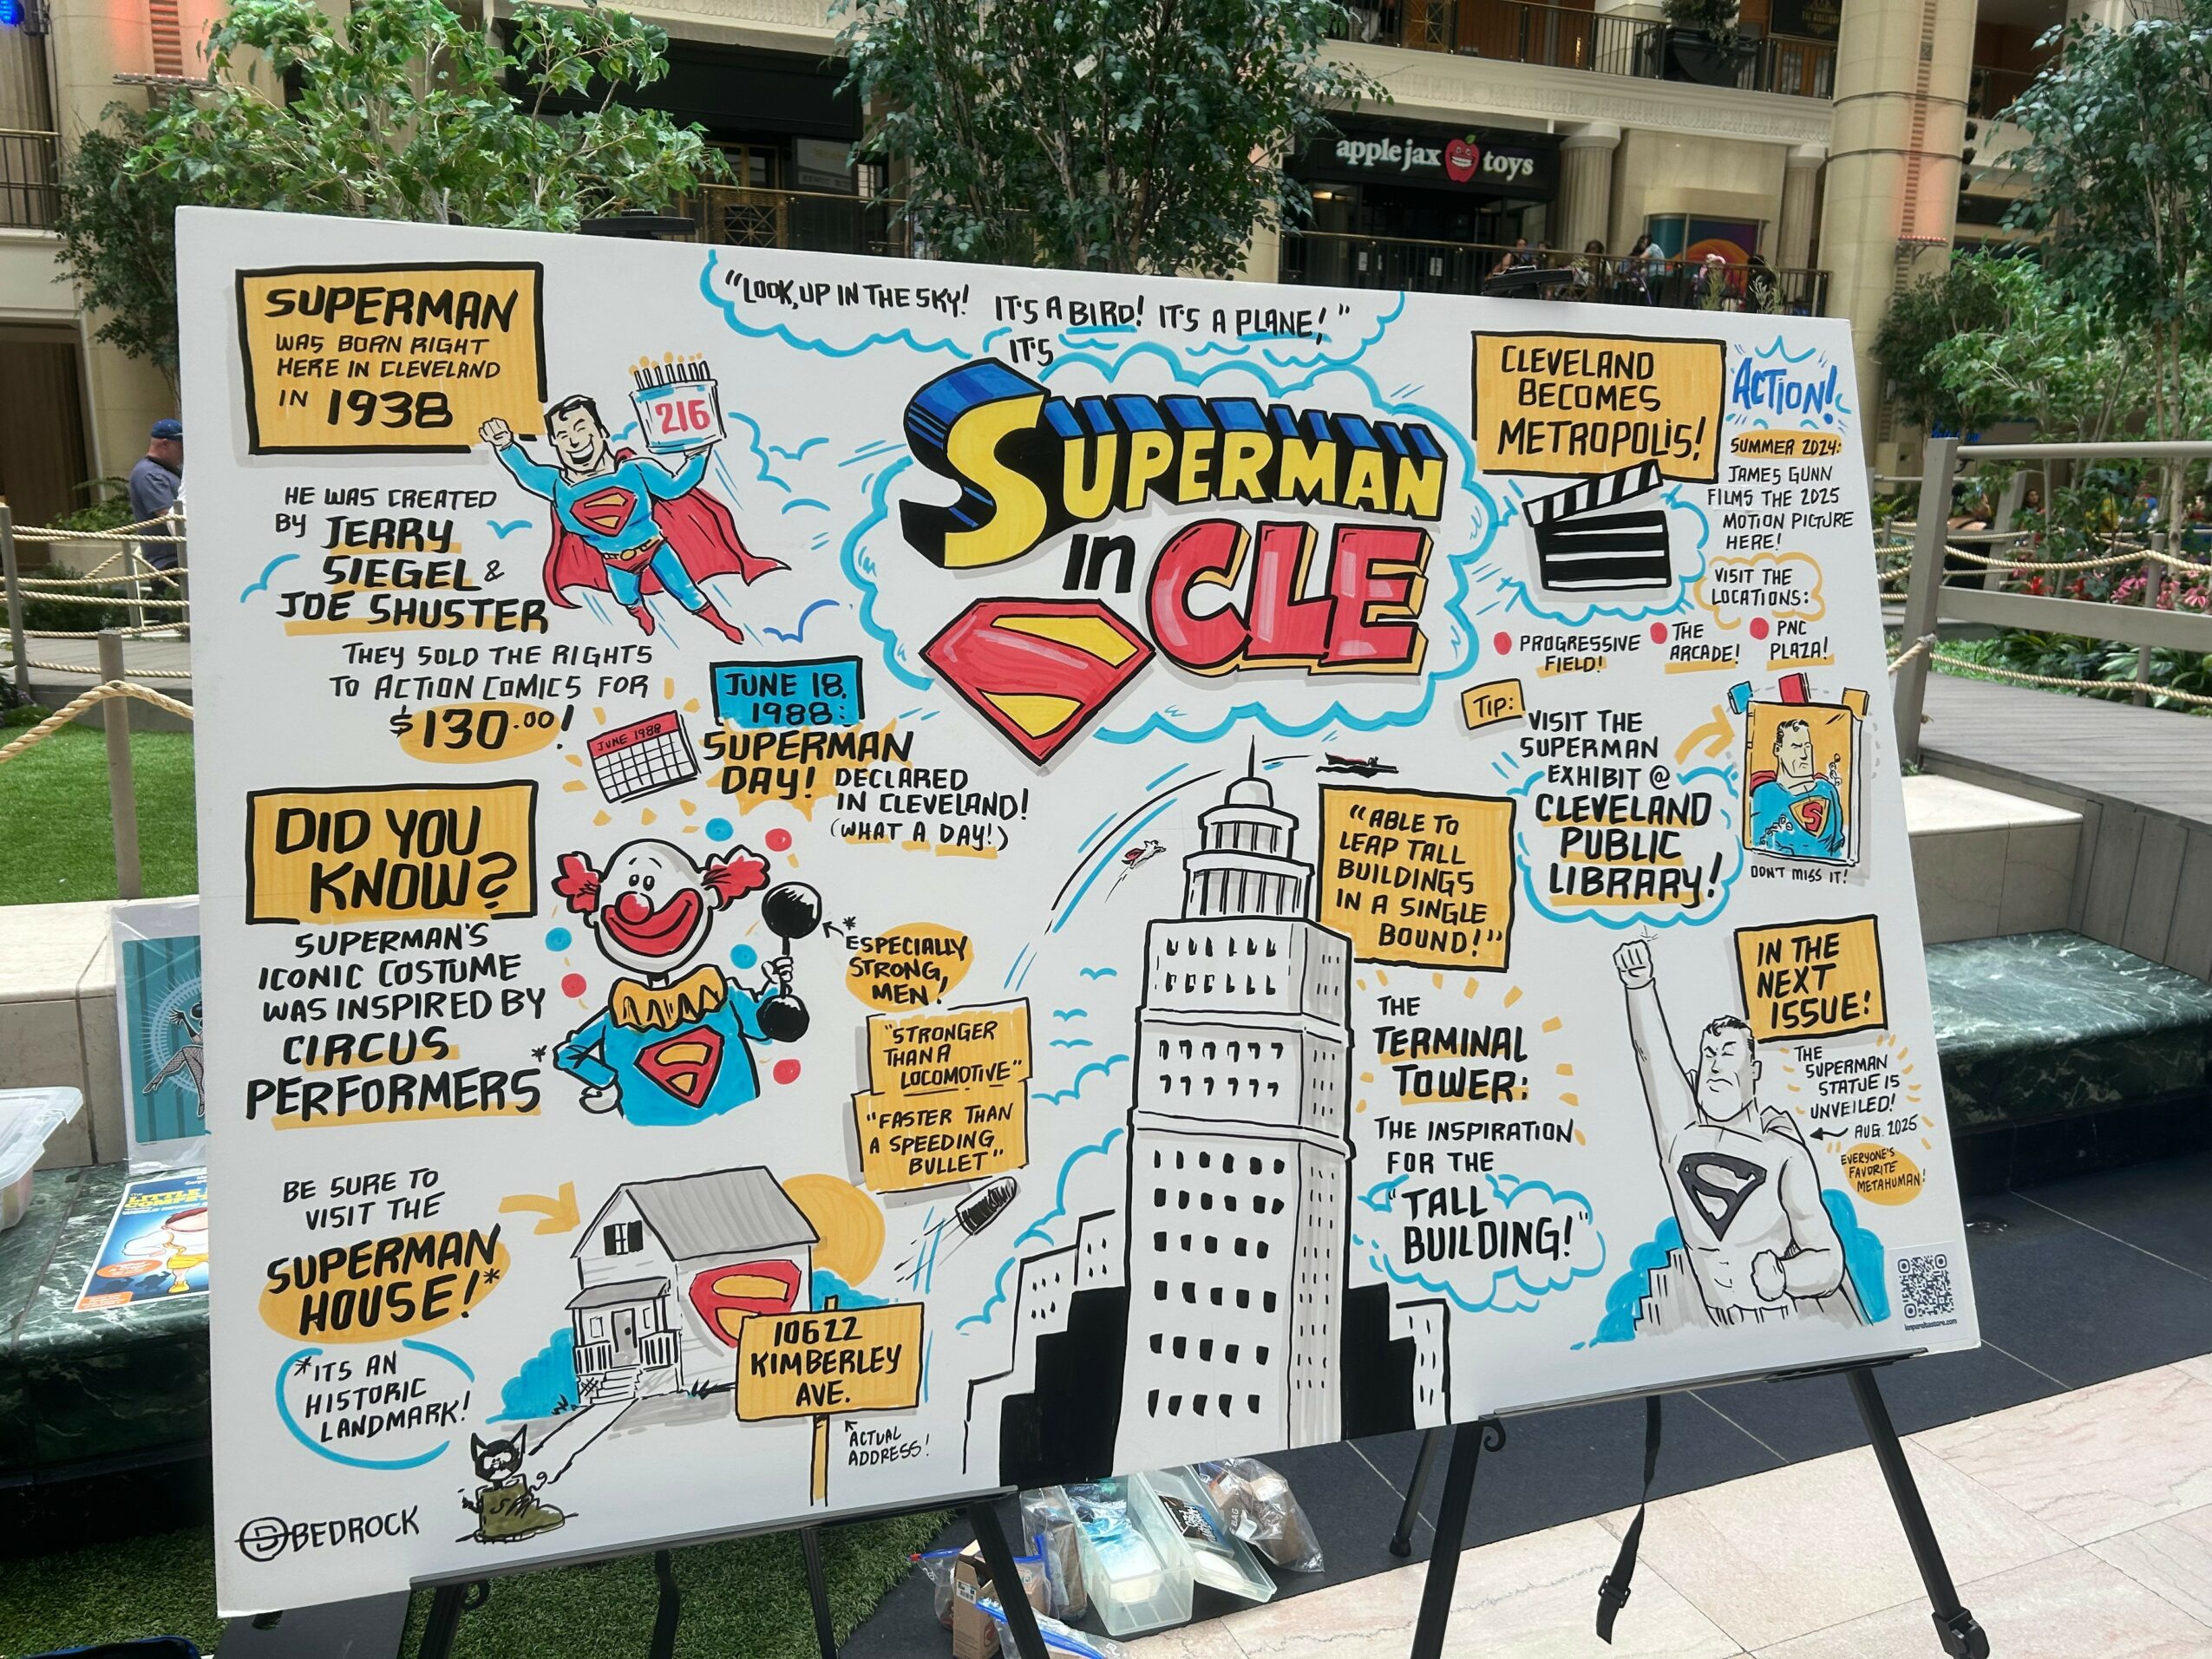 apple jax toys
"LOOK, UP IN THE SKY! IT'S A BIRD! IT'S A PLANE!"
IT'S
SUPERMAN
in CLE
SUPERMAN
WAS BORN RIGHT
HERE IN CLEVELAND
IN 1938
216
HE WAS CREATED
BY JERRY
SIEGEL &
JOE SHUSTER
THEY SOLD THE RIGHTS
TO ACTION COMICS FOR
$130.00!
JUNE 1988
JUNE 18,
1988:
SUPERMAN
DAY! DECLARED
IN CLEVELAND!
(WHAT A DAY!)
DID YOU
KNOW?
SUPERMAN'S
ICONIC COSTUME
WAS INSPIRED BY
CIRCUS
PERFORMERS*
*ESPECIALLY
STRONG
MEN!
"STRONGER
THAN A
LOCOMOTIVE"
"FASTER THAN
A SPEEDING
BULLET"
BE SURE TO
VISIT THE
SUPERMAN
HOUSE!*
*ITS AN
HISTORIC
LANDMARK!
10622
KIMBERLEY
AVE.
ACTUAL
ADDRESS!
BEDROCK
"ABLE TO
LEAP TALL
BUILDINGS
IN A SINGLE
BOUND!"
THE
TERMINAL
TOWER:
THE INSPIRATION
FOR THE
"TALL
BUILDING!"
CLEVELAND
BECOMES
METROPOLIS!
ACTION!
SUMMER 2024:
JAMES GUNN
FILMS THE 2025
MOTION PICTURE
HERE!
VISIT THE
LOCATIONS:
PROGRESSIVE
FIELD!
THE
ARCADE!
PNC
PLAZA!
TIP:
VISIT THE
SUPERMAN
EXHIBIT @
CLEVELAND
PUBLIC
LIBRARY!
S
DON'T MISS IT!
IN THE
NEXT
ISSUE!
THE
SUPERMAN
STATUE IS
UNVEILED!
AUG. 2025
EVERYONE'S
FAVORITE
METAHUMAN!